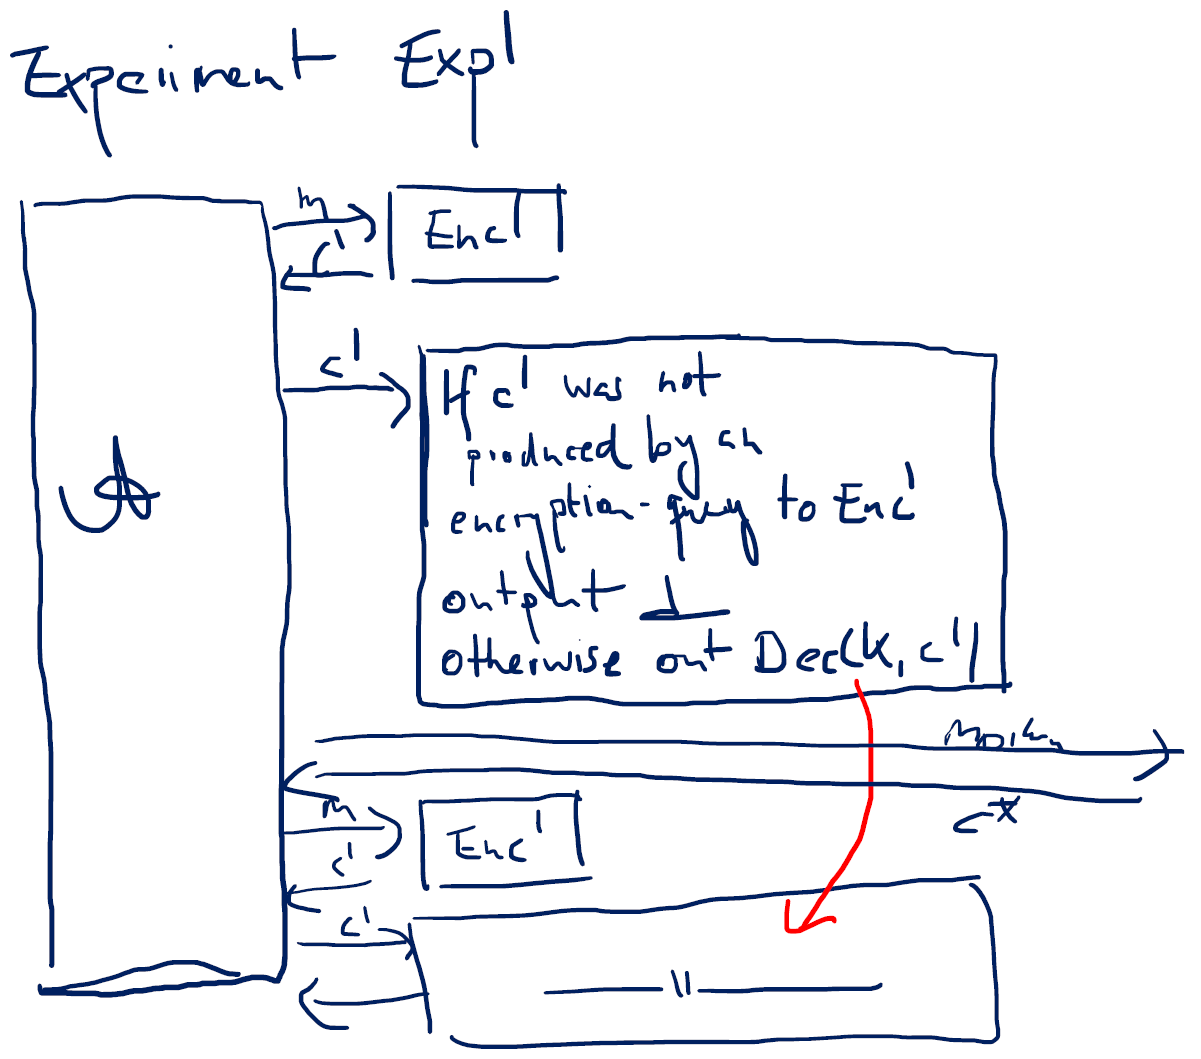 Experiment Exp'
m
Enc'
c'
c'
If c' was not
produced by an
encryption-query to Enc'
output ⊥
otherwise out Dec(k, c')
A
m₀, m₁
c*
m
Enc'
c'
c'
—— " ——